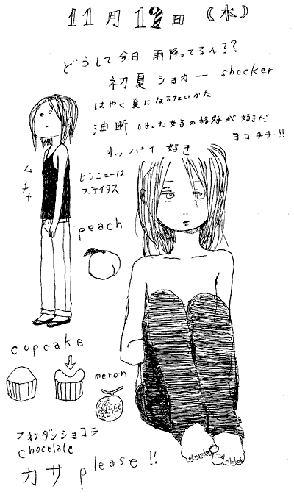 11月12日 (水)
どうして今日 雨降ってるんだ??
初夏 ショオー shocker
はやく夏に
油断 した女子の格好が好きだ
ヨコチチ!!
オッパイ 好き
ムチ
ビンニューは
ステイタス
peach
cupcake
meron
フォンダンショコラ
chocolate
カサ please!!